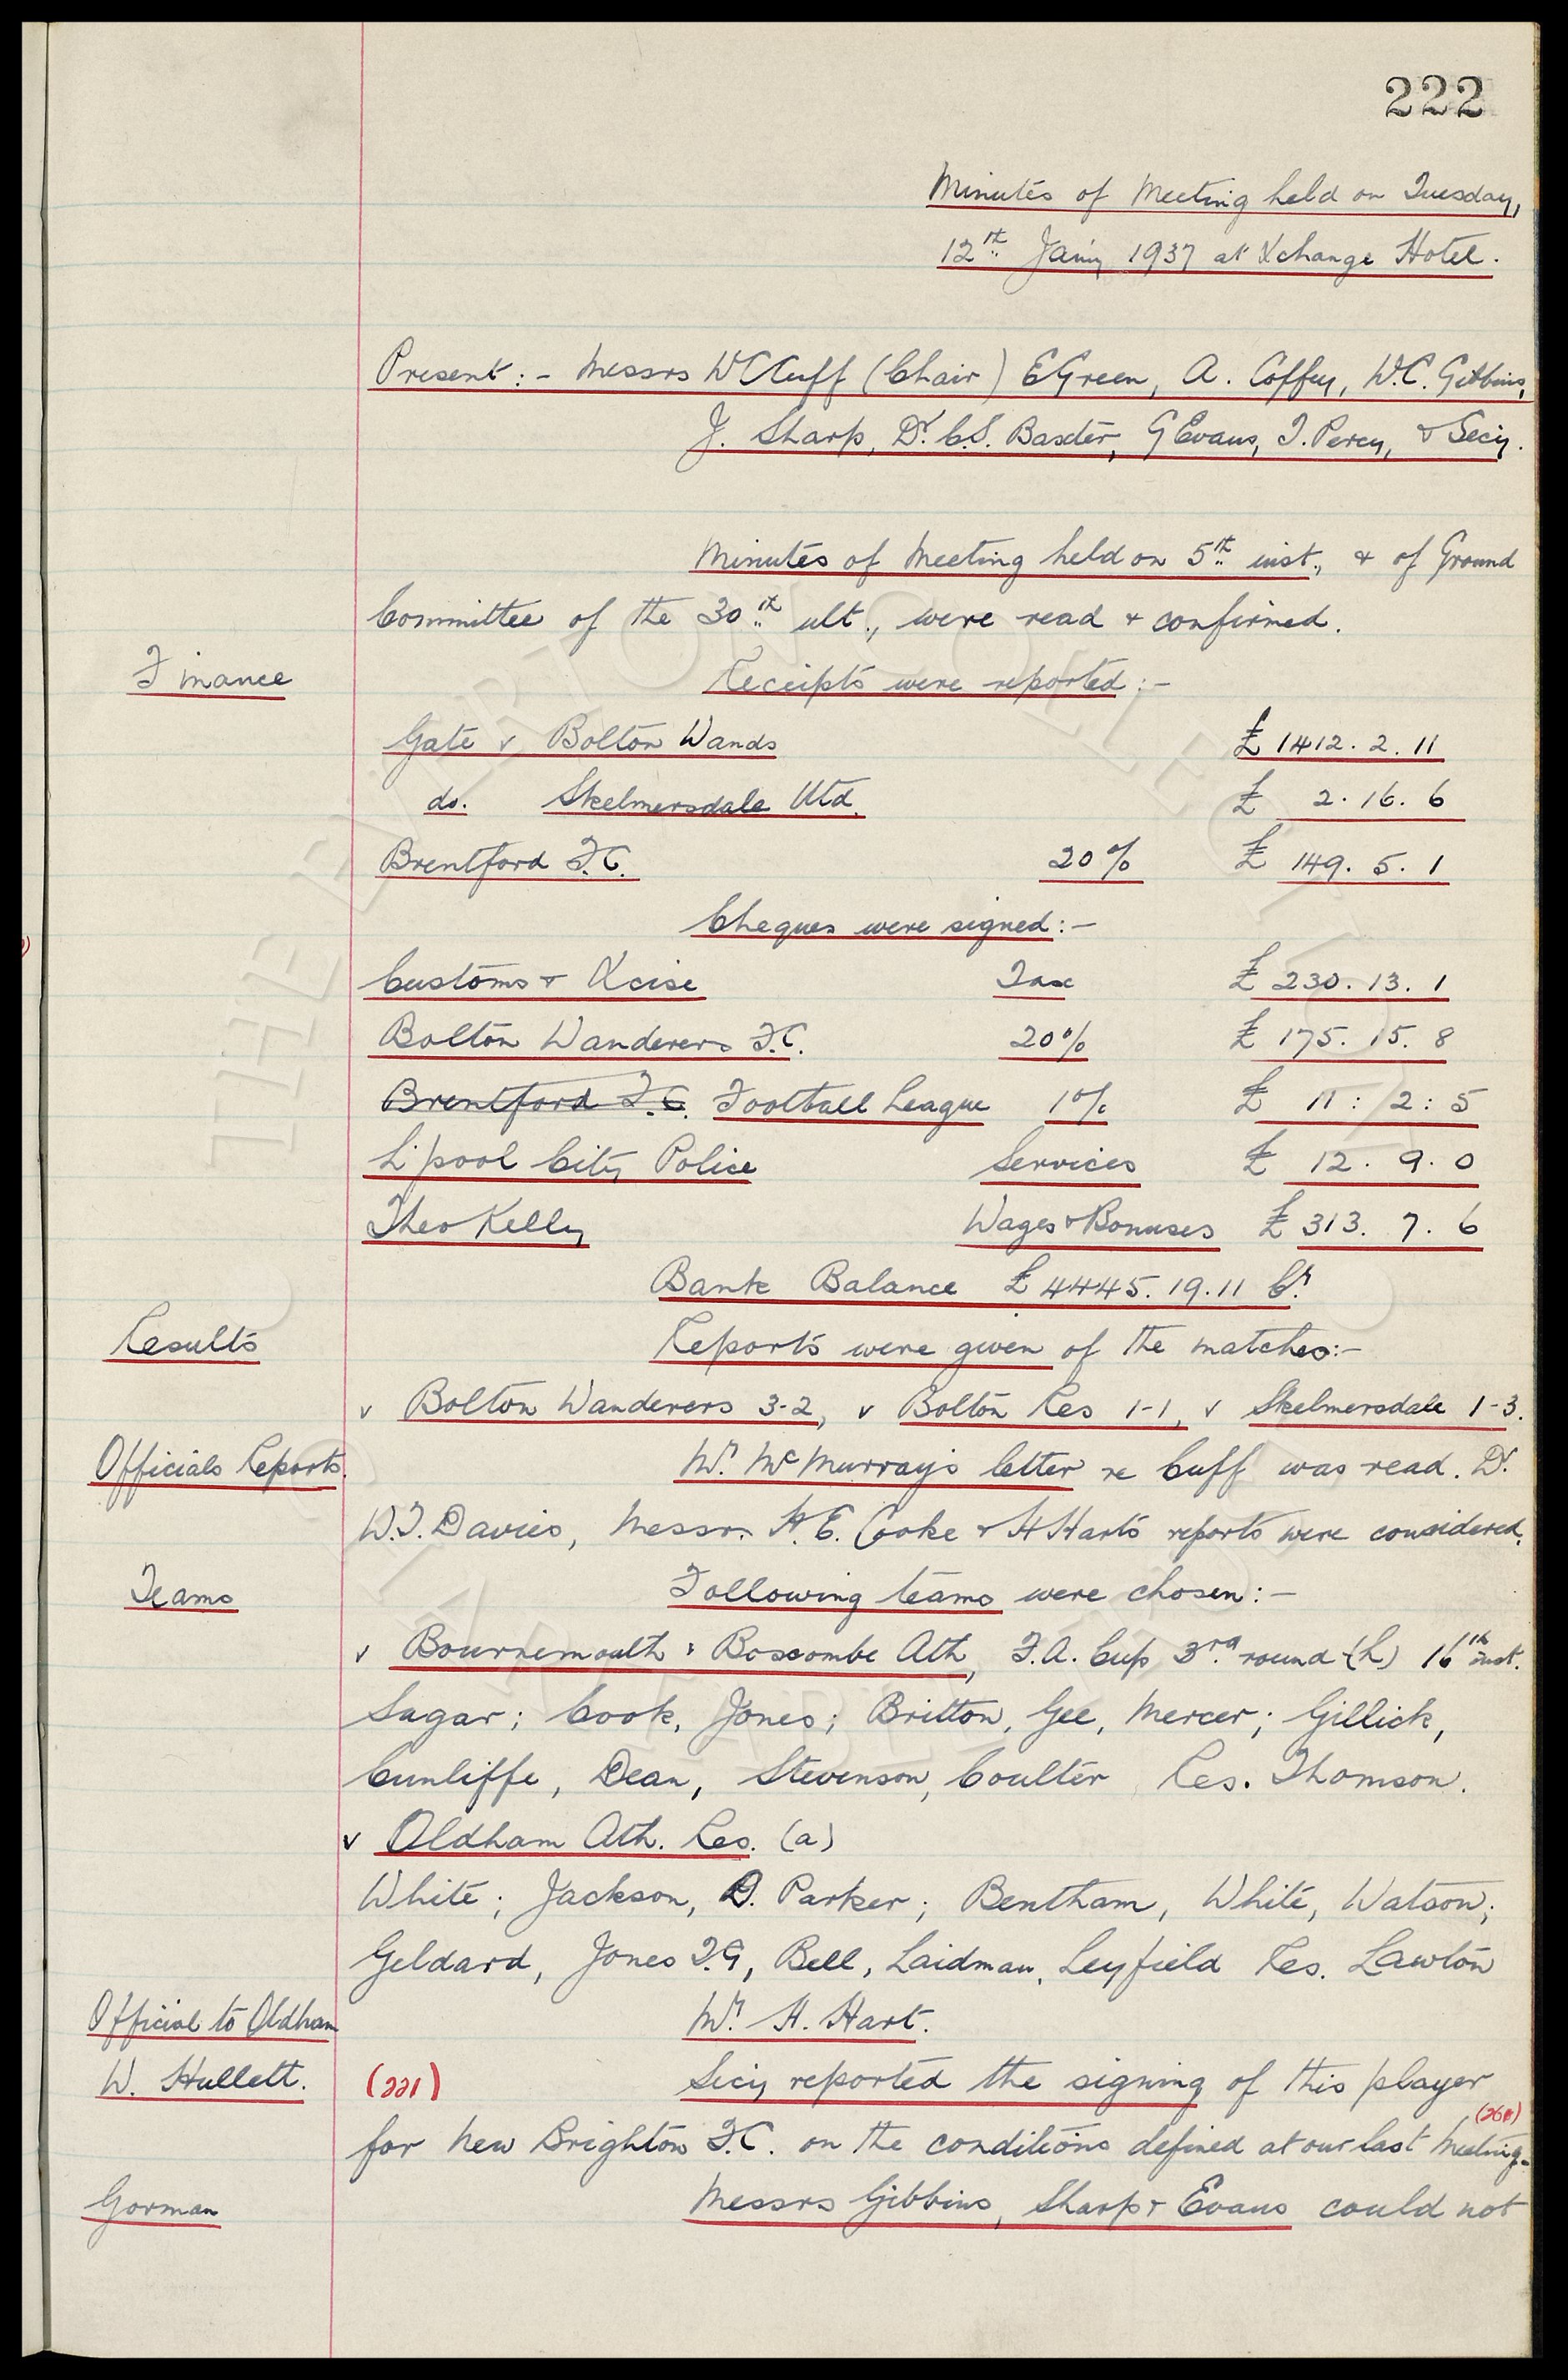 222
Minutes of Meeting held on Tuesday,
12th Jan'y 1937 at Xchange Hotel.
Present:- Messrs W C Cuff (Chair) E Green, A. Coffey, W.C. Gibbins,
J. Sharp, Dr. C.S. Baxter, G Evans, T. Percy, & Sec'y.
Minutes of Meeting held on 5th inst., & of Ground
Committee of the 30th ult., were read & confirmed.
Finance
Receipts were reported:-
Gate v Bolton Wands £1412. 2. 11
do. Skelmersdale Utd. £ 2. 16. 6
Brentford F.C. 20% £ 149. 5. 1
Cheques were signed:-
Customs & Xcise Tax £ 230. 13. 1
Bolton Wanderers F.C. 20% £ 175. 15. 8
Brentford F.C. Football League 1% £ 11: 2: 5
L'pool City Police Services £ 12. 9. 0
Theo Kelly Wages & Bonuses £ 313. 7. 6
Bank Balance £4445. 19. 11 Cr.
Results
Reports were given of the matches:-
v Bolton Wanderers 3-2, v Bolton Res 1-1, v Skelmersdale 1-3.
Officials Reports.
Mr. McMurray's letter re Cuff was read. Dr.
W.T. Davies, Messrs H.E. Cooke & H Hart's reports were considered.
Teams
Following teams were chosen:-
v Bournemouth & Boscombe Ath, F.A. Cup 3rd round (h) 16th inst.
Sagar; Cook, Jones; Britton, Gee, Mercer; Gillick,
Cunliffe, Dean, Stevenson, Coulter Res. Thomson.
v Oldham Ath. Res. (a)
White; Jackson, D. Parker; Bentham, White, Watson;
Geldard, Jones T.G, Bell, Laidman, Leyfield Res. Lawton
Official to Oldham
Mr. H. Hart.
W. Hullett.
(221) Sec'y reported the signing of this player
for New Brighton F.C. on the conditions defined at our last Meeting.
Gorman
Messrs Gibbins, Sharp & Evans could not
THE EVERTON COLLECTION